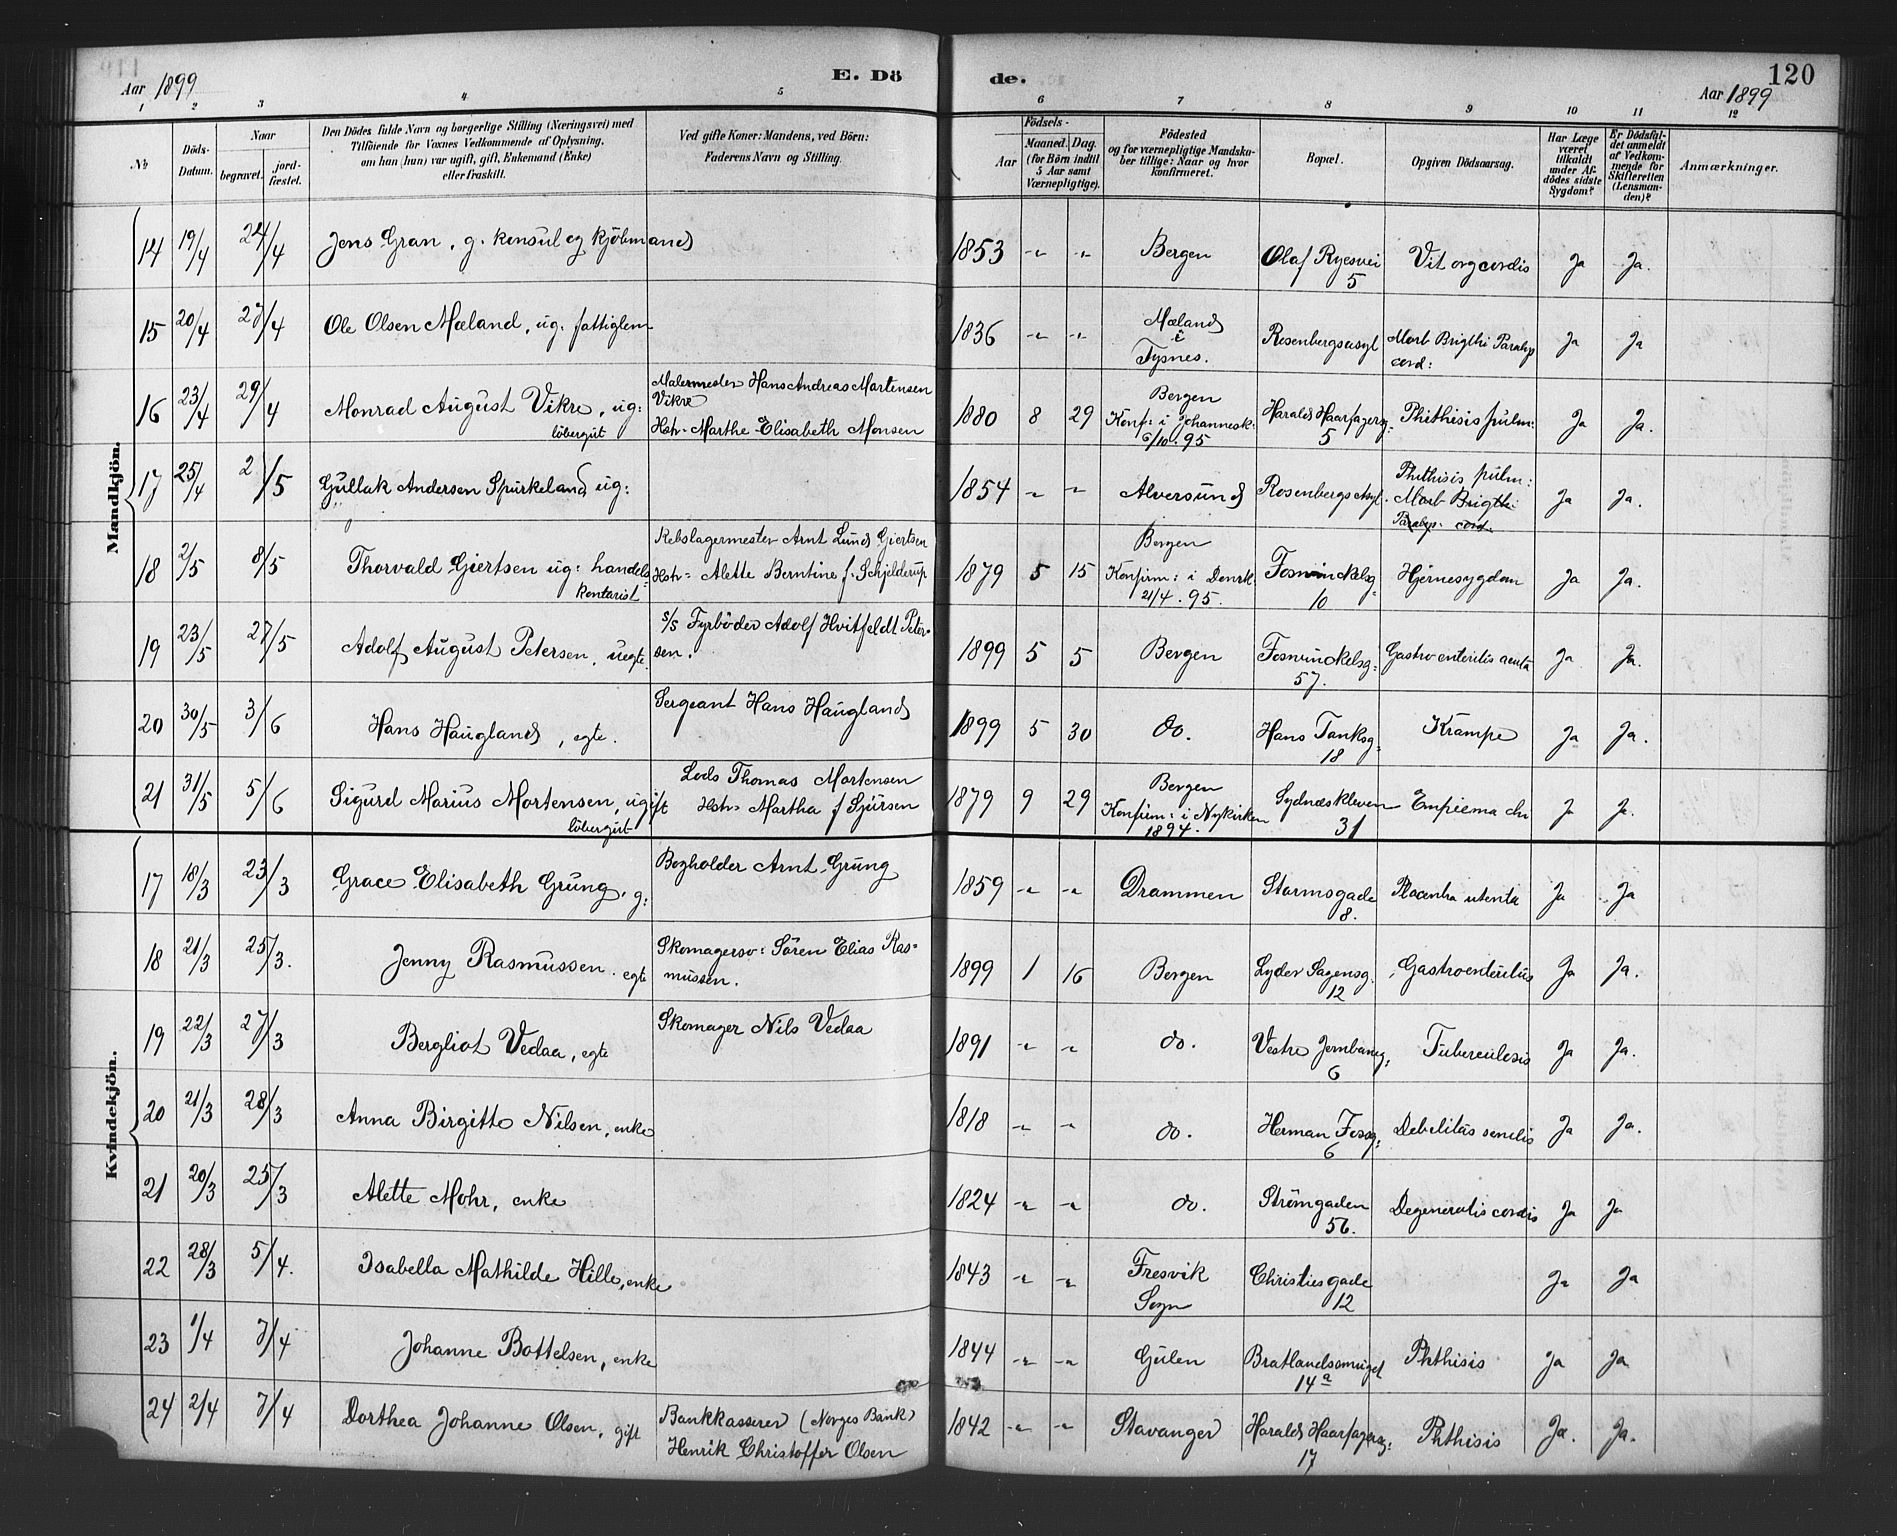 Aar 1899
E. Dö
de.
120
Aar 1899
1 2 3 4 5 6 7 8 9 10 11 12
No
Döds-Datum.
Naar
begravet.
jordfæstet.
Den Dödes fulde Navn og borgerlige Stilling (Næringsvei) med
Tilföiende for Voxnes Vedkommende af Oplysning,
om han (hun) var ugift, gift, Enkemand (Enke)
eller fraskilt.
Ved gifte Koner: Mandens, ved Börn:
Faderens Navn og Stilling.
Födsels-
Aar
Maaned. Dag.
(for Börn indtil
5 Aar samt
Værnepligtige).
Födested
og for værnepligtige Mandskaber tillige: Naar og hvor
konfirmeret.
Bopæl.
Opgiven Dödsaarsag.
Har Læge
været
tilkaldt
under Afdödes sidste
Sygdom?
Er Dödsfaldet anmeldt
af Vedkommende for
Skifteretten
(Lensmanden)?
Anmærkninger.
Mandkjön.
14 19/4 24/4 Jens Gran, g. konsul og kjöbmand 1853 -"- -"- Bergen Olaf Ryesvei 5 Vit org cordis Ja Ja.
15 20/4 27/4 Ole Olsen Mæland, ug. fattiglem 1836 -"- -"- Mæland i Tysnes. Rosenbergs asyl Morb Brigthi Paralyp cord: Ja Ja
16 23/4 29/4 Monrad August Vikre, ug: löbergut Malermester Hans Andreas Mortensen Vikre Hstr. Marthe Elisabeth Monsen 1880 8 29 Bergen Konf: i Johannesk: 6/10. 95 Harald Haarfagersg: 5 Phthisis pulm: Ja Ja.
17 25/4 2/5 Gullak Andersen Spurkeland, ug: 1854 -"- -"- Alversund Rosenbergs Asyl. Phthisis pulm: Morb Brigthi Paralyp. cord. Ja Ja.
18 2/5 8/5 Thorvald Giertsen ug: handelskontorist Rebslagermester Arnt Lund Giertsen Hstr: Alette Berntine f. Schjelderup 1879 5 15 Bergen Konfirm: i Domk. 21/4. 95. Fosvinckelsg: 10 Hjernesygdom Ja Ja.
19 23/5 27/5 Adolf August Petersen, uegte. s/s Fyrböder Adolf Hvitfeldt Petersen. 1899 5 5 Bergen Fosvinckelsg: 57. Gastro enteritis acuta Ja Ja.
20 30/5 3/6 Hans Haugland, egte. Sergeant Hans Haugland 1899 5 30 do. Hans Tanksg: 18 Krampe Ja Ja.
21 31/5 5/6 Sigurd Marius Mortensen, ugift löbergut Lods Thomas Mortensen Hstr. Martha f Sjursen 1879 9 29 Bergen Konfirm: i Nykirken 1894. Sydnæskleven 31 Empiema chr Ja Ja.
Kvindekjön.
17 18/3 23/3 Grace Elisabeth Grung. g: Bogholder Arnt Grung 1859 -"- -"- Drammen Stormsgade 8. Ja Ja
18 21/3 25/3. Jenny Rasmussen. egte Skomagersv: Sören Elias Rasmussen. 1899 1 16 Bergen Lyder Sagensg. 12 Gastroenteritis Ja Ja.
19 22/3 27/3 Bergliot Vedaa, egte Skomager Nils Vedaa 1891 -"- -"- do. Vestre Jernbaneg: 6 Tuberculosis Ja Ja.
20 21/3 28/3 Anna Birgitte Nilsen, enke 1818 -"- -"- do. Herman Fossg: 6 Debilitas senilis Ja Ja.
21 20/3 25/3 Alette Mohr, enke 1824 -"- -"- do. Strömgaden 56. Degeneratis cordis Ja Ja
22 28/3 5/4. Isabella Mathilde Hille, enke 1843 -"- -"- Fresvik Sogn Christiesgade 12 Ja Ja
23 1/4 7/4 Johanne Bottelsen, enke 1844 -"- -"- Gulen Bratlandsmuget 14a Phthisis Ja Ja
24 2/4 7/4 Dorthea Johanne Olsen, gift Bankkasserer (Norges Bank) Henrik Christoffer Olsen 1842 -"- -"- Stavanger Harald Haarfagersg: 17 Phthisis Ja. Ja.